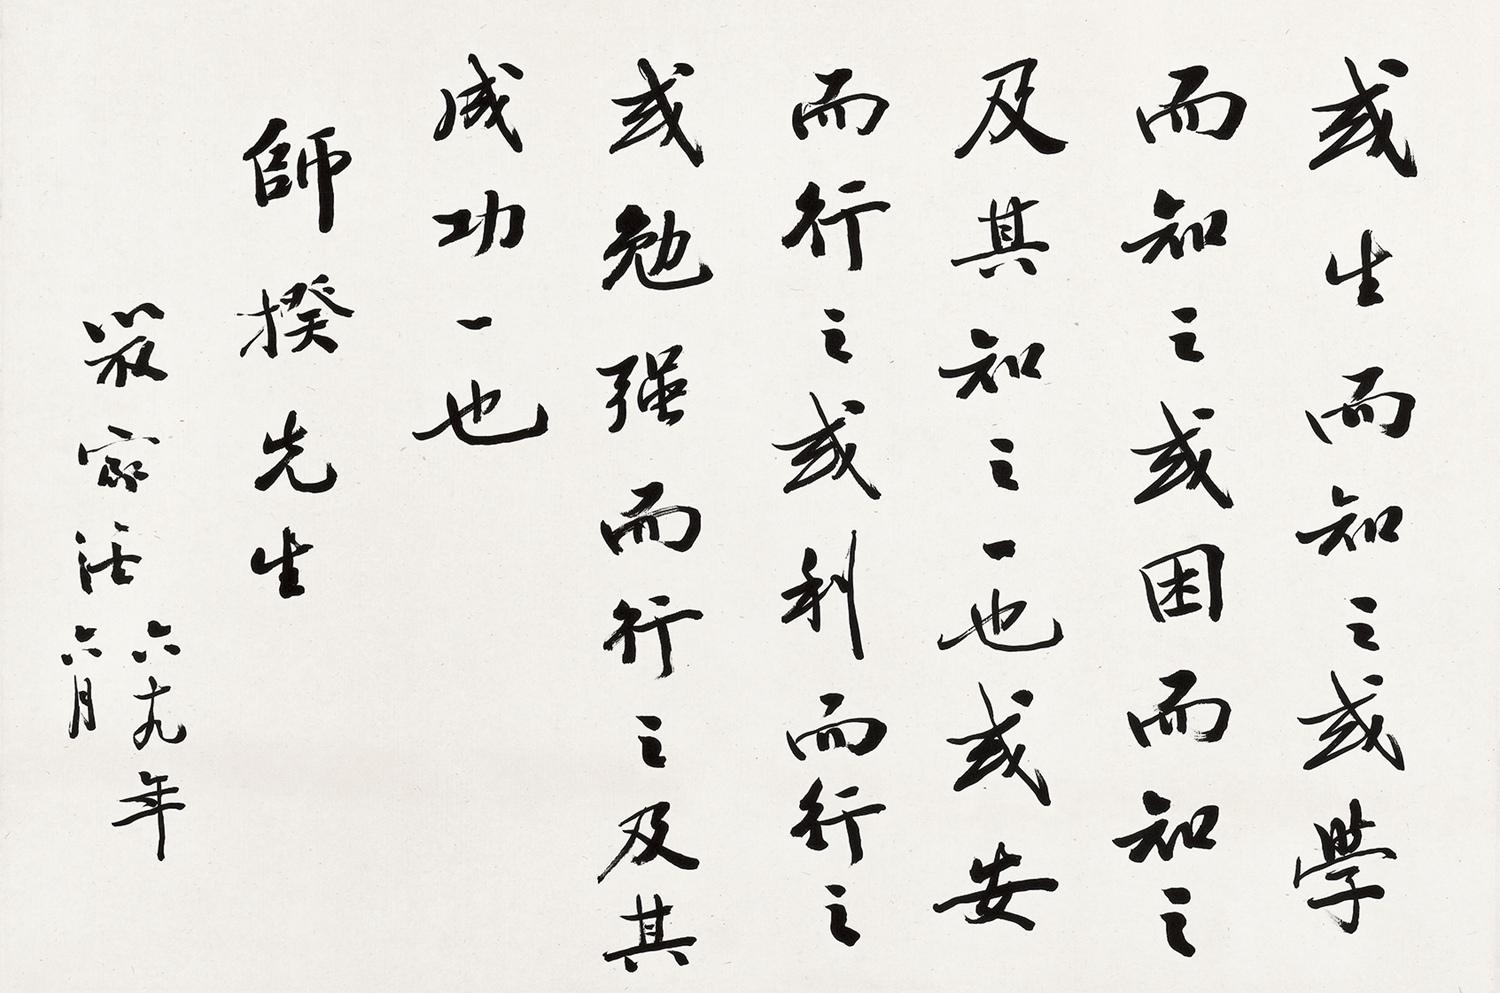 或生而知之或學
而知之或困而知之
及其知之一也或安
而行之或利而行之
或勉强而行之及其
成功一也
師揆先生
嚴家淦 六十九年
六月